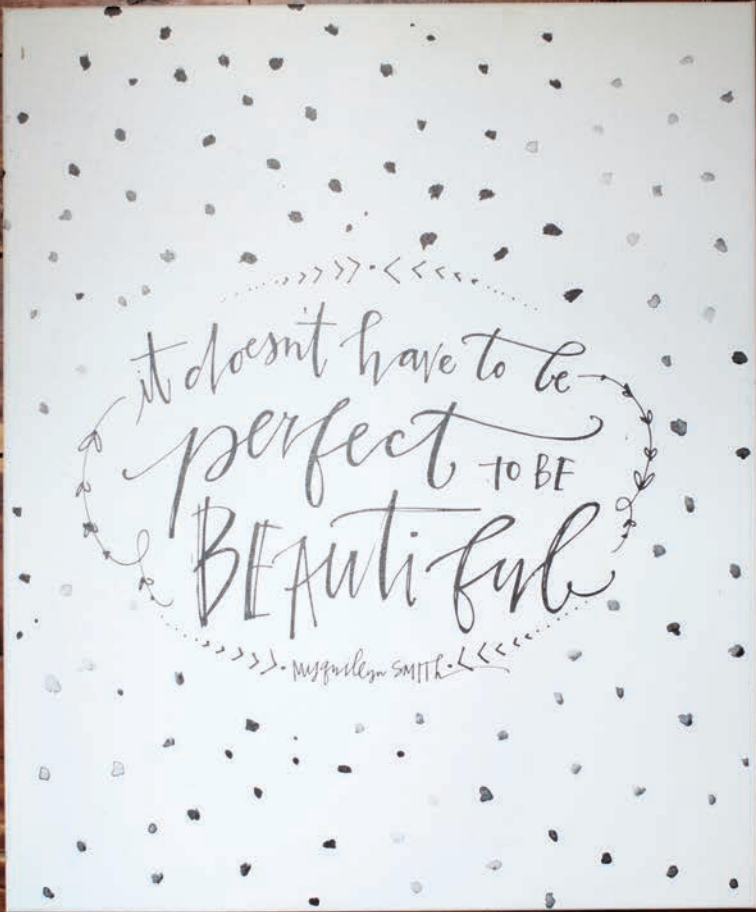 it doesn't have to be
perfect TO BE
BEAUtiful
Myquillyn SMITh